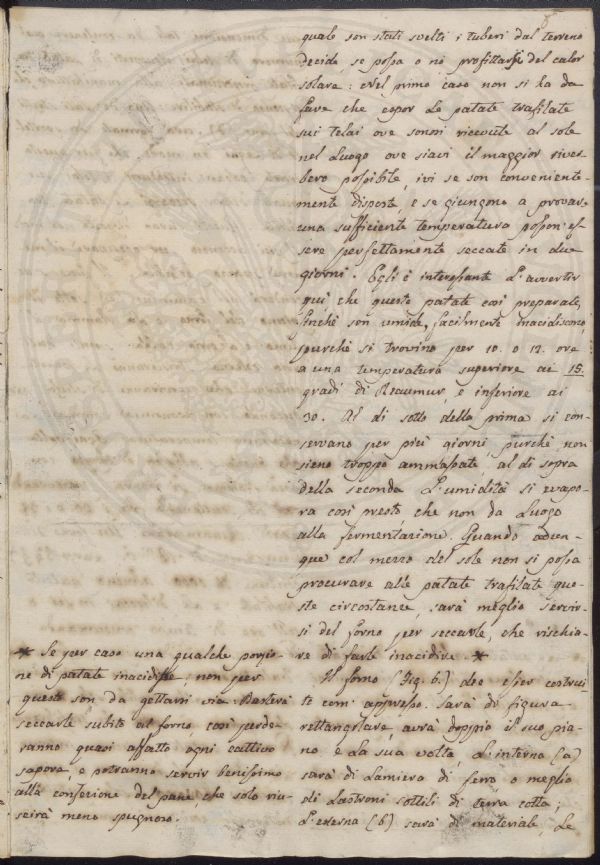 5
quale son stati svelti i tuberi dal terreno
decide, se possa o nò profittarsi del calor
solare: Nel primo caso non si ha da
fare che espor le patate trafilate
sui telai ove sonosi ricevute al sole
nel luogo ove siavi il maggior river
bero possibile, ivi se son conveniente-
mente disposte, e se giungono a provare
una sufficiente temperatura posson es
sere perfettamente seccate in due
giorni. Egli è interessante l'avvertir
quì che queste patate così preparate,
finchè son umide, facilmente inacidiscono,
purchè si trovino per 10. o 12. ore
a una temperatura superiore ai 15.
gradi di Reaumur, e inferiore ai
30. Al di sotto della prima si con-
servano per più giorni, purchè non
sieno troppo ammassate, al di sopra
della seconda l'umidità si evapo-
ra così presto che non da luogo
alla fermentazione. Quando adun-
que col mezzo del sole non si possa
procurare alle patate trafilate que-
ste circostanze, sarà meglio servir-
si del forno per seccarle, che rischia-
re di farle inacidire. *
Il forno (Fig. 6.) dee esser costrui
to com' appresso. Sarà di figura
rettangolare avrà doppio il suo pia-
no e la sua volta, l'interna (a)
sarà di lamiera di ferro o meglio
di lastroni sottili di terra cotta;
l'externa (b) sarà di materiale, le
* Se per caso una qualche porzio-
ne di patate inacidisse, non per
questo son da gettarsi via. Basterà
seccarle subito al forno, così perde-
ranno quasi affatto ogni cattivo
sapore, e potranno servir benissimo
alla confezione del pane che solo riu-
scirà meno spugnoso.